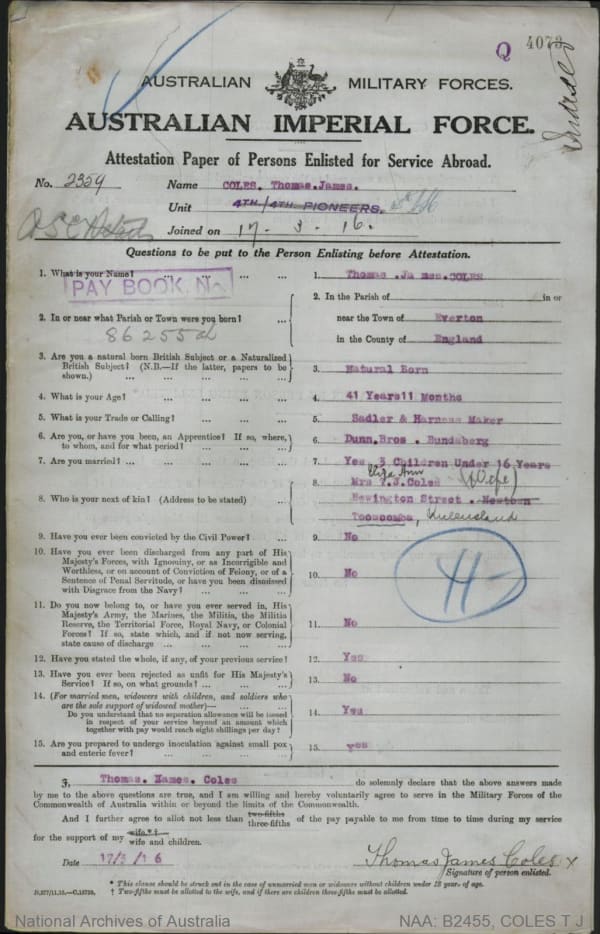 Q 4073
AUSTRALIAN MILITARY FORCES.
AUSTRALIAN IMPERIAL FORCE.
Attestation Paper of Persons Enlisted for Service Abroad.
No. 2359 Name COLES. Thomas.James.
Unit 4TH/4TH. PIONEERS.
Joined on 17 - 3 - 16.
Questions to be put to the Person Enlisting before Attestation.
1. What is your Name? ... ... ... ... 1. Thomas .Ja mes.COLES
PAY BOOK. No.
86255d
2. In or near what Parish or Town were you born? ... 2. In the Parish of in or
near the Town of Everton
in the County of England
3. Are you a natural born British Subject or a Naturalized
British Subject? (N.B.—If the latter, papers to be
shown.) ... ... ... ... ... 3. Natural Born
4. What is your Age? ... ... ... ... 4. 41 Years11 Months
5. What is your Trade or Calling? ... ... ... 5. Sadler & Harness Maker
6. Are you, or have you been, an Apprentice? If so, where,
to whom, and for what period? ... ... ... 6. Dunn.Bros . Bundaberg
7. Are you married? ... ... ... ... ... 7. Yes 3 Children Under 16 Years
Eliza Ann
8. Who is your next of kin? (Address to be stated) ... 8. Mrs T.J.Coles (Wife)
Newington Street . Newtown
Toowoomba, Queensland
9. Have you ever been convicted by the Civil Power? ... 9. No
10. Have you ever been discharged from any part of His
Majesty's Forces, with Ignominy, or as Incorrigible and
Worthless, or on account of Conviction of Felony, or of a
Sentence of Penal Servitude, or have you been dismissed
with Disgrace from the Navy? ... ... ... 10. No
11. Do you now belong to, or have you ever served in, His
Majesty's Army, the Marines, the Militia, the Militia
Reserve, the Territorial Force, Royal Navy, or Colonial
Forces? If so, state which, and if not now serving,
state cause of discharge ... ... ... ... 11. No
12. Have you stated the whole, if any, of your previous service? 12. Yes
13. Have you ever been rejected as unfit for His Majesty's
Service? If so, on what grounds? ... ... ... 13. No
14. (For married men, widowers with children, and soldiers who
are the sole support of widowed mother)—
Do you understand that no separation allowance will be issued
in respect of your service beyond an amount which
together with pay would reach eight shillings per day? 14. Yes
15. Are you prepared to undergo inoculation against small pox
and enteric fever? ... ... ... ... 15. yes
I, Thomas. Kames. Coles do solemnly declare that the above answers made
by me to the above questions are true, and I am willing and hereby voluntarily agree to serve in the Military Forces of the
Commonwealth of Australia within or beyond the limits of the Commonwealth.
And I further agree to allot not less than two-fifths three-fifths of the pay payable to me from time to time during my service
for the support of my wife*† wife and children.
Date 17/3/16 Thomas James Coles x
Signature of person enlisted.
* This clause should be struck out in the case of unmarried men or widowers without children under 18 years of age.
† Two-fifths must be allotted to the wife, and if there are children three-fifths must be allotted.
D.277/11.15.—C.15738.
National Archives of Australia NAA: B2455, COLES T J